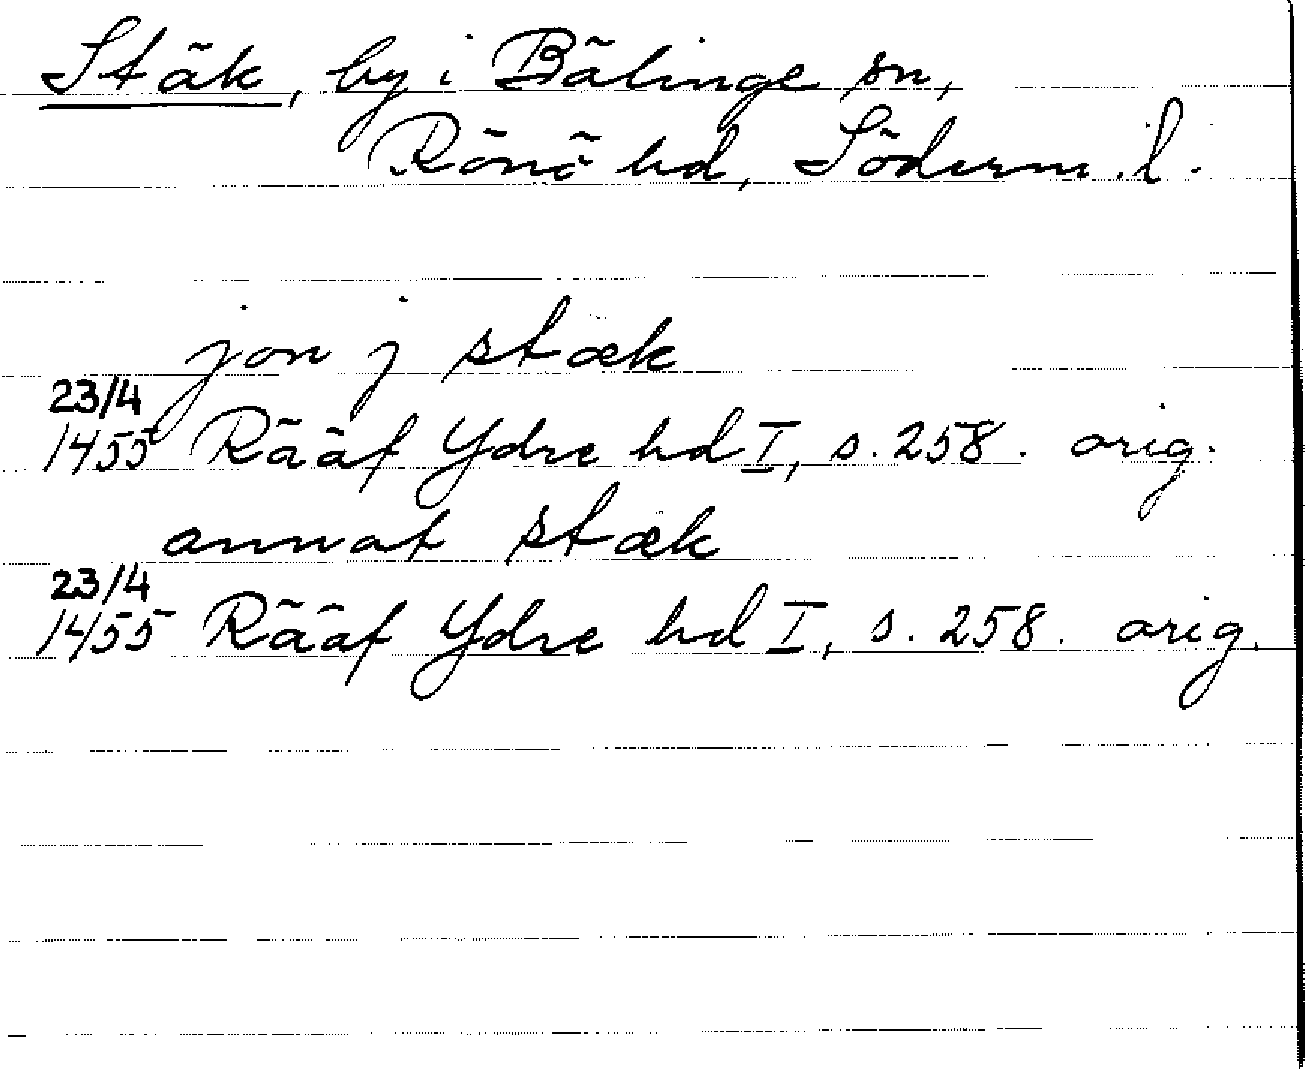 Stäk, by i Bälinge sn,
Rönö hd, Söderm. l.
jon j stæk
23/4
1455 Rääf Ydre hd I, s. 258. orig.
annat stæk
23/4
1455 Rääf Ydre hd I, s. 258. orig.